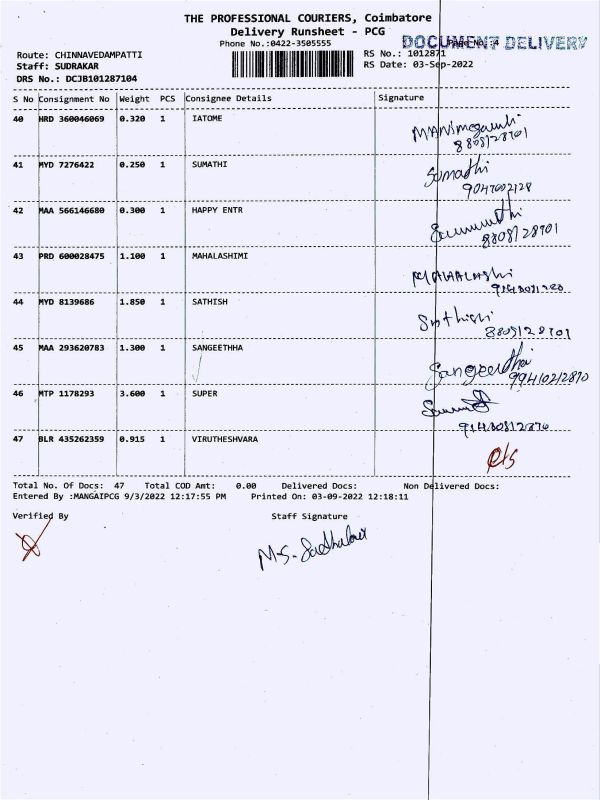 THE PROFESSIONAL COURIERS, Coimbatore
Delivery Runsheet - PCG
Phone No.:0422-3505555
DOCUMENT DELIVERY
Page No.:4
Route: CHINNAVEDAMPATTI
RS No.: 1012871
Staff: SUDRAKAR
RS Date: 03-Sep-2022
DRS No.: DCJB101287104
S No Consignment No Weight PCS Consignee Details Signature
40 HRD 360046069 0.320 1 IATOME
8808128701
41 MYD 7276422 0.250 1 SUMATHI Sumathi
9047602128
42 MAA 566146680 0.300 1 HAPPY ENTR
8808128701
43 PRD 600028475 1.100 1 MAHALASHIMI
44 MYD 8139686 1.850 1 SATHISH
45 MAA 293620783 1.300 1 SANGEETHHA Sangeetha
99410212870
46 MTP 1178293 3.600 1 SUPER
47 BLR 435262359 0.915 1 VIRUTHESHVARA
Total No. Of Docs: 47 Total COD Amt: 0.00 Delivered Docs: Non Delivered Docs:
Entered By :MANGAIPCG 9/3/2022 12:17:55 PM Printed On: 03-09-2022 12:18:11
Verified By Staff Signature